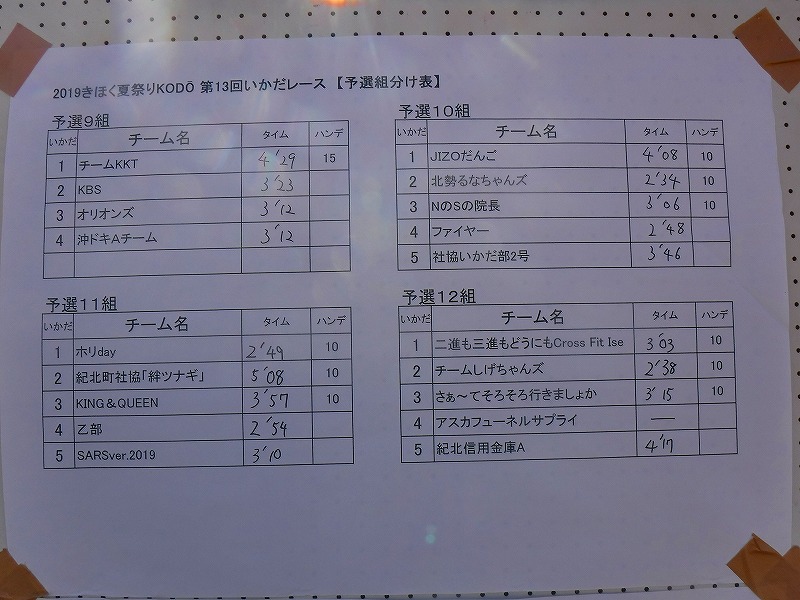 2019きほく夏祭りKODŌ 第13回いかだレース 【予選組分け表】
予選9組
いかだ チーム名 タイム ハンデ
1 チームKKT 4'29 15
2 KBS 3'23
3 オリオンズ 3'12
4 沖ドキAチーム 3'12
予選10組
いかだ チーム名 タイム ハンデ
1 JIZOだんご 4'08 10
2 北勢るなちゃんズ 2'34 10
3 NのSの院長 3'06 10
4 ファイヤー 2'48
5 社協いかだ部2号 3'46
予選11組
いかだ チーム名 タイム ハンデ
1 ホリday 2'49 10
2 紀北町社協「絆ツナギ」 5'08 10
3 KING＆QUEEN 3'57 10
4 乙部 2'54
5 SARSver.2019 3'10
予選12組
いかだ チーム名 タイム ハンデ
1 二進も三進もどうにもCross Fit Ise 3'03 10
2 チームしげちゃんズ 2'38 10
3 さぁ～てそろそろ行きましょか 3'15 10
4 アスカフューネルサプライ —
5 紀北信用金庫A 4'17